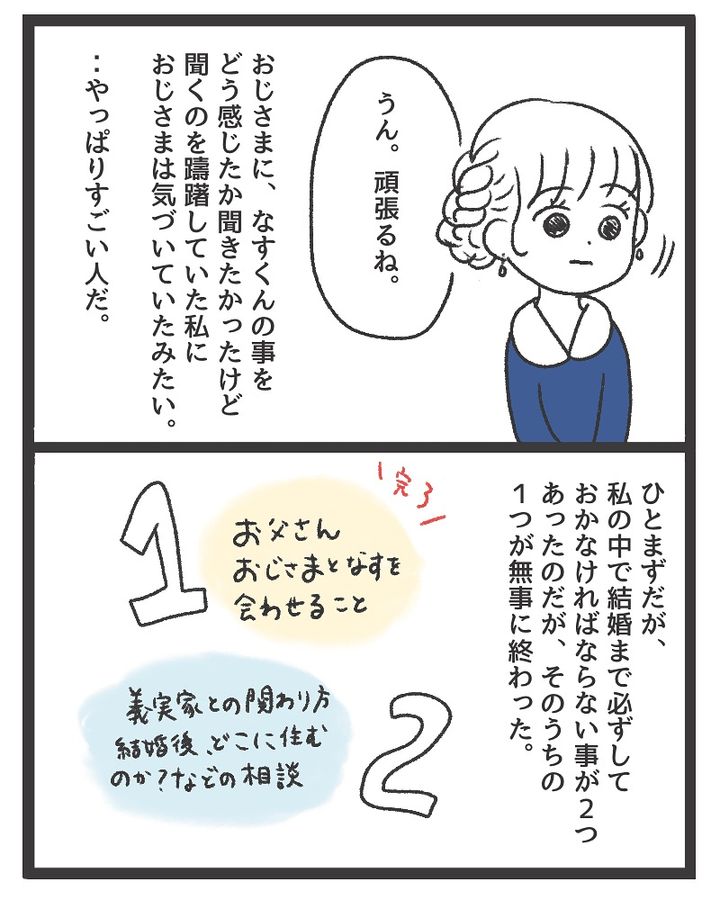 うん。頑張るね。
おじさまに、なすくんの事を
どう感じたか聞きたかったけど
聞くのを躊躇していた私に
おじさまは気づいていたみたい。
：やっぱりすごい人だ。
ひとまずだが、
私の中で結婚まで必ずして
おかなければならない事が２つ
あったのだが、そのうちの
１つが無事に終わった。
完了
1
お父さん
おじさまとなすを
会わせること
2
義実家との関わり方
結婚後、どこに住む
のか？などの相談